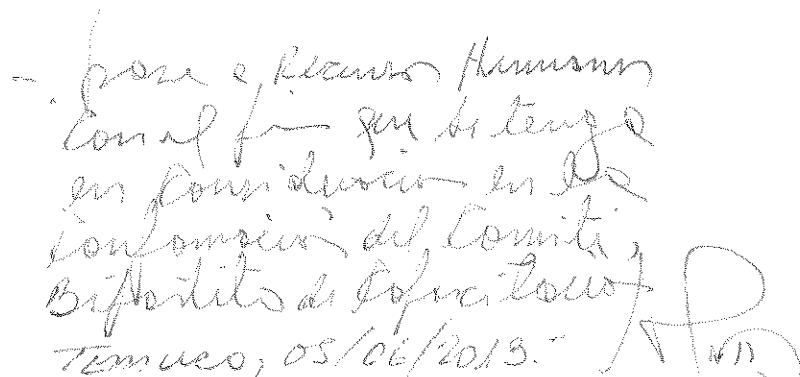 - pase a Recursos Humanos
con el fin que se tenga
en Consideración en la
Conformación del Comité,
Bipartito de Capacitación
Temuco, 05/06/2013.-